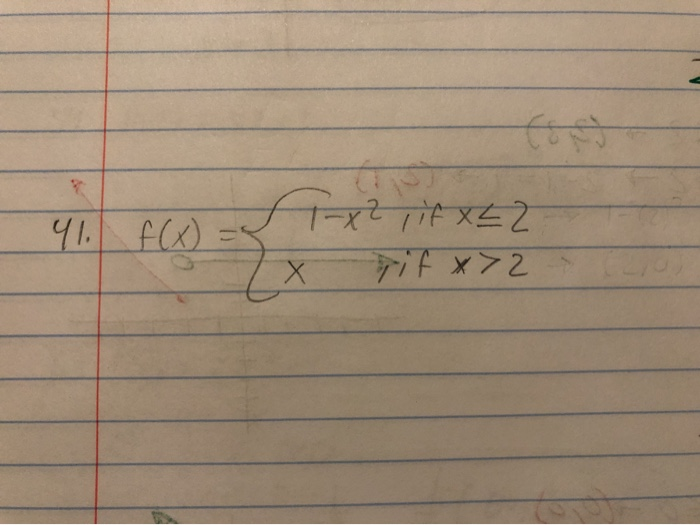 41. f(x) = { 1-x² , if x ≤ 2
x , if x > 2